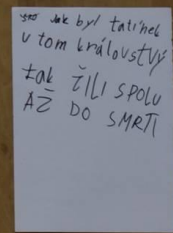 Jak byl tatínek
v tom královstvý
tak ŽILI SPOLU
AŽ DO SMRTI